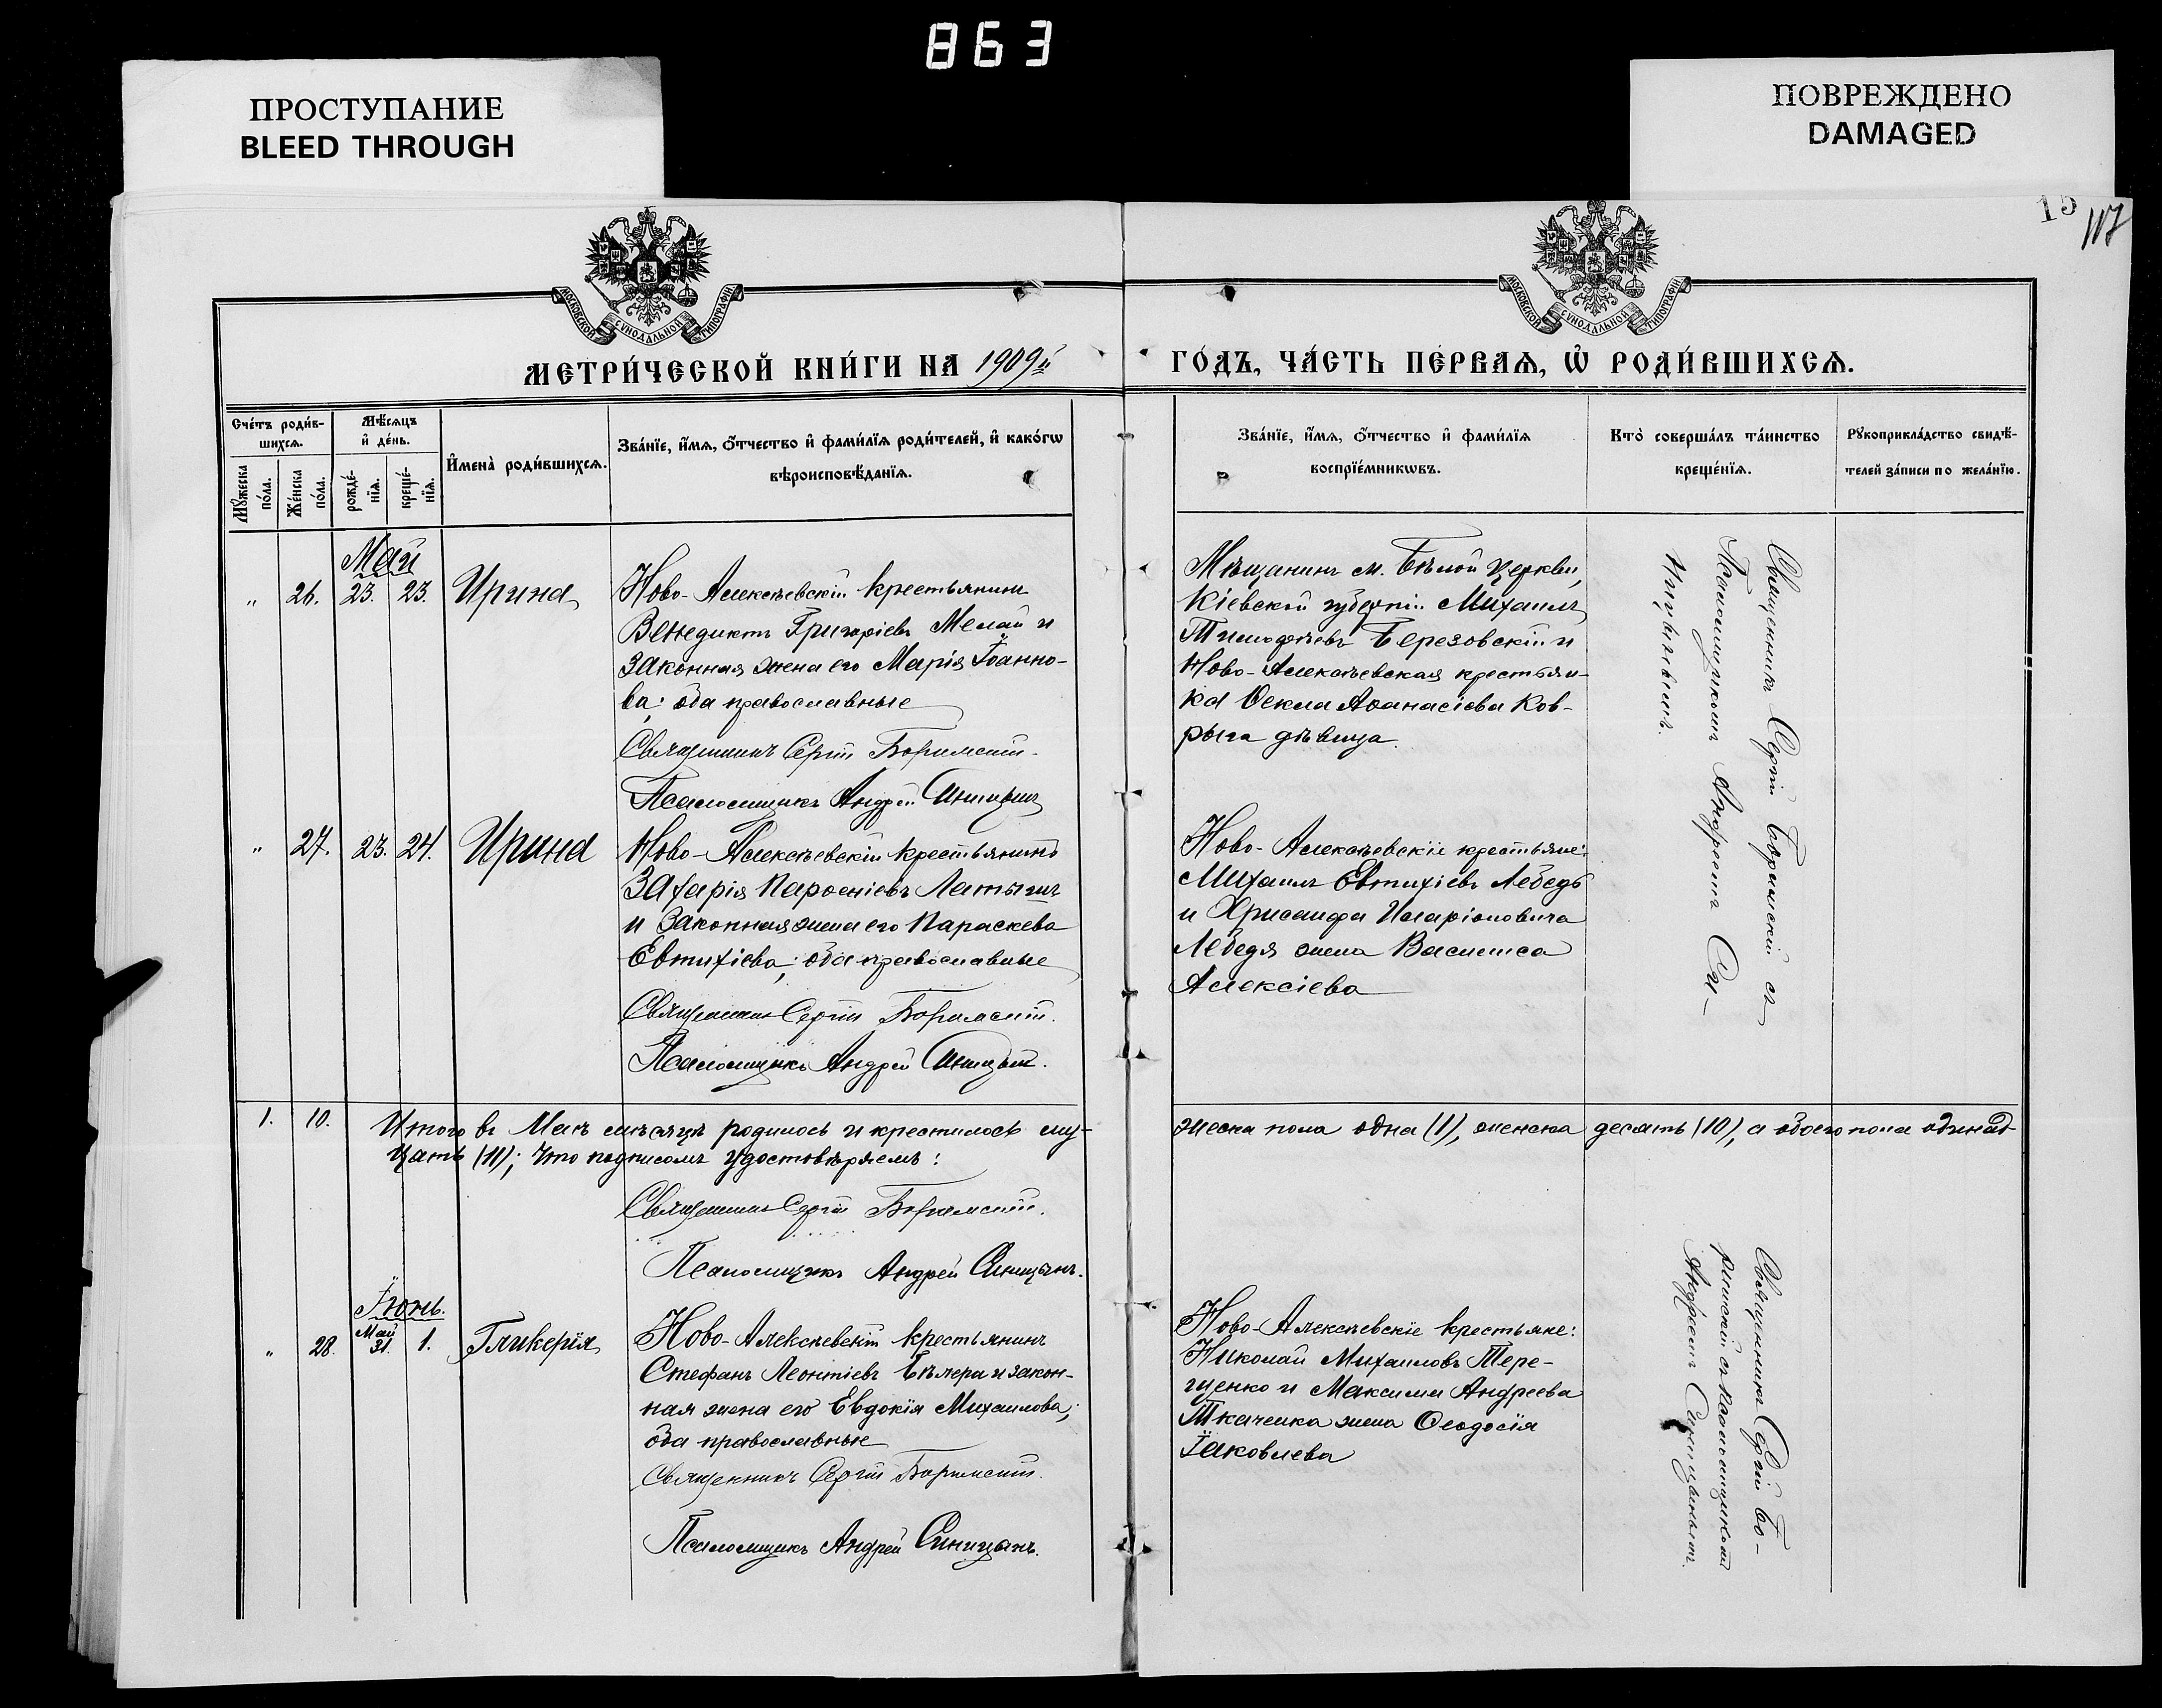 863
ПРОСТУПАНИЕ
BLEED THROUGH
ПОВРЕЖДЕНО
DAMAGED
15
117
МОСКОВСКОЙ СѴНОДАЛЬНОЙ ТИПОГРАФІИ
МОСКОВСКОЙ СѴНОДАЛЬНОЙ ТИПОГРАФІИ
МЕТРИ́ЧЕСКОЙ КНИ́ГИ НА 1909й
ГО́ДЪ, ЧА́СТЬ ПЕ́РВАѦ, Ѡ҆ РОДИ́ВШИХСѦ.
Сче́тъ роди́в-
шихсѧ.
Мꙋ́жеска
по́ла.
Же́нска
по́ла.
Мѣ́сѧцъ
и҆ де́нь.
рожде́-
нїѧ.
креще́-
нїѧ.
И҆мена̀ роди́вшихсѧ.
Зва́нїе, и҆́мѧ, ѻ҆́тчество и҆ фами́лїѧ роди́телей, и҆ како́гѡ
вѣроисповѣ́данїѧ.
Зва́нїе, и҆́мѧ, ѻ҆́тчество и҆ фами́лїѧ
воспрїе́мникѡвъ.
Кто̀ соверша́лъ та́инство
креще́нїѧ.
Рꙋкоприкла́дство свидѣ́-
телей за́писи по жела́нїю.
Май
„ 26. 23. 23. Ирина
Ново-Алексѣевскій крестьянинъ
Венедиктъ Григоріевъ Мелай и
законная жена его Марія Іоанно-
ва; оба православные
Священникъ Сергій Боримскій.
Псаломщикъ Андрей Синицынъ
Мѣщанинъ м. Бѣлой Церкви,
Кіевской губерніи Михаилъ
Тимоѳеевъ Березовскій и
Ново-Алексѣевская крестьян-
ка Ѳекла Аѳанасіева Ков-
рыга дѣвица.
Священникъ Сергій Боримскій съ
Псаломщикомъ Андреемъ Си-
ницынымъ.
„ 27. 23. 24. Ирина
Ново-Алексѣевскій крестьянинъ
Захарія Парѳеніевъ Латышъ
и законная жена его Параскева
Евтихіева; оба православные
Священникъ Сергій Боримскій.
Псаломщикъ Андрей Синицынъ.
Ново-Алексѣевскіе крестьяне:
Михаилъ Евтихіевъ Лебедь
и Хрисанфа Иларіоновича
Лебедя жена Василиса
Алексіева
1. 10. Итого въ Маѣ мѣсяцѣ родилось и крестилось му-
жеска пола одна (1), женска десять (10), а обоего пола одинад-
цать (11); что подписомъ удостовѣряемъ:
Священникъ Сергій Боримскій.
Псаломщикъ Андрей Синицынъ.
Іюнь.
„ 28. Май 31. 1. Гликерія
Ново-Алексѣевскій крестьянинъ
Стефанъ Леонтіевъ Бѣлера и закон-
ная жена его Евдокія Михаилова;
оба православные
Священникъ Сергій Боримскій.
Псаломщикъ Андрей Синицынъ.
Ново-Алексѣевскіе крестьяне:
Николай Михаиловъ Тере-
щенко и Максима Андреева
Ткаченка жена Ѳеодосія
Іаковлева
Священникъ Сергій Бо-
римскій съ Псаломщикомъ
Андреемъ Синицынымъ.